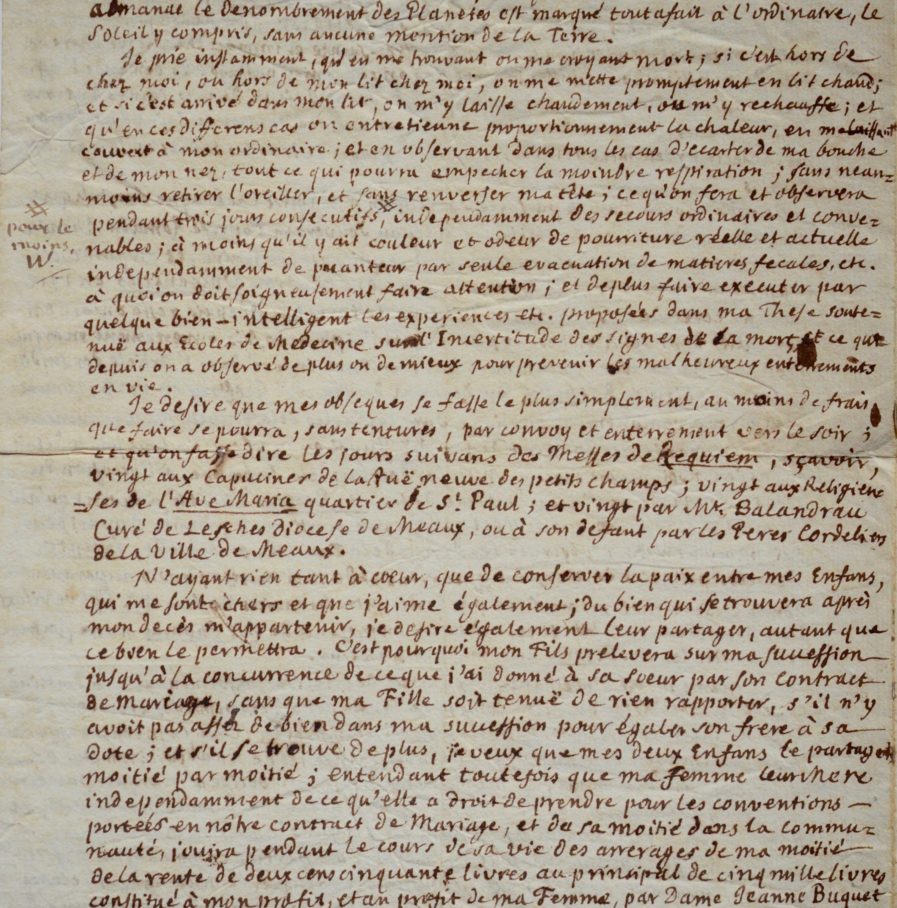 almanac le denombrement des Planetes est marqué tout afait à l'ordinaire, le
Soleil y compris, sans aucune mention de la Terre.
Je prie instamment, qu'en me trouvant ou me croyant mort; si c'est hors de
chez moi, ou hors de mon lit chez moi, on me mette promptement en lit chaud;
et si c'est arrivé dans mon lit, on m'y laisse chaudement, ou m'y rechauffe; et
qu'en ces differens cas on entretienne proportionnement la chaleur, en me laissant
couvert à mon ordinaire; et en observant dans tous les cas d'ecarter de ma bouche
et de mon nez, tout ce qui pourra empecher la moindre respiration; sans nean-
moins retirer l'oreiller, et sans renverser ma tête; ce qu'on fera et observera
pendant trois jours consecutifs #, independamment des secours ordinaires et conve-
# pour le
moins.
W.
nables; à moins qu'il y ait couleur et odeur de pourriture réelle et actuelle
independamment de puanteur par seule evacuation de matieres fecales, etc.
à quoi on doit soigneusement faire attention; et de plus faire executer par
quelque bien-intelligent les experiences etc. proposées dans ma These soute=
nuë aux Ecoles de Medecine sur l'Incertitude des signes de la mort, et ce que
depuis on a observé de plus ou de mieux pour prevenir les malheureux enterrements
en vie.
Je desire que mes obseques se fasse le plus simplement, au moins de frais
que faire se pourra, sans tentures, par convoy et enterrement vers le soir;
et qu'on fasse dire les jours suivans des Messes de Requiem, sçavoir,
vingt aux Capucines de la Ruë neuve des petits champs; vingt aux Religieu
=ses de l'Ave Maria quartier de St. Paul; et vingt par Mr. Balandrau
Curé de Lesches Diocese de Meaux, ou à son defaut par les Peres Cordeliers
de la Ville de Meaux.
N'ayant rien tant à cœur, que de conserver la paix entre mes Enfans,
qui me sont chers et que j'aime également; du bien qui se trouvera après
mon decès m'appartenir, je desire également leur partager, autant que
ce bien le permettra. C'est pourquoi mon Fils prelevera sur ma succession
jusqu'à la concurrence de ce que j'ai donné à sa soeur par son contract
de Mariage, sans que ma Fille soit tenuë de rien rapporter, s'il n'y
avoit pas assez de bien dans ma succession pour égaler son frere à sa
dote; et s'il se trouve de plus, je veux que mes deux Enfans le partagent
moitié par moitié; entendant toutefois que ma femme leur Mere
independamment de ce qu'elle a droit de prendre pour les conventions
portées en nôtre contract de Mariage, et de sa moitié dans la commu=
nauté, jouira pendant le cours de sa vie des arrerages de ma moitié
de la rente de deux cens cinquante livres au principal de cinq mille livres
constitué à mon profit, et au profit de ma Femme, par Dame Jeanne Buquet